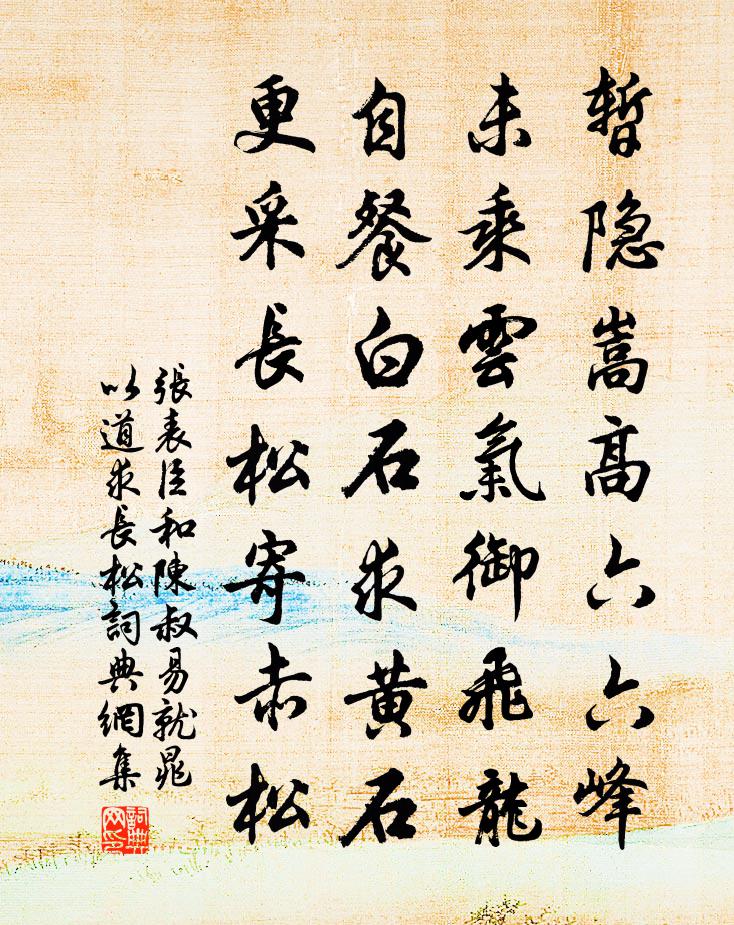 暫隐嵩高六六峰
未乘雲氣御飛龍
自餐白石求黄石
更采長松寄赤松
張表臣和陳叔易就晁
以道求長松詞典網集
詞典
网印